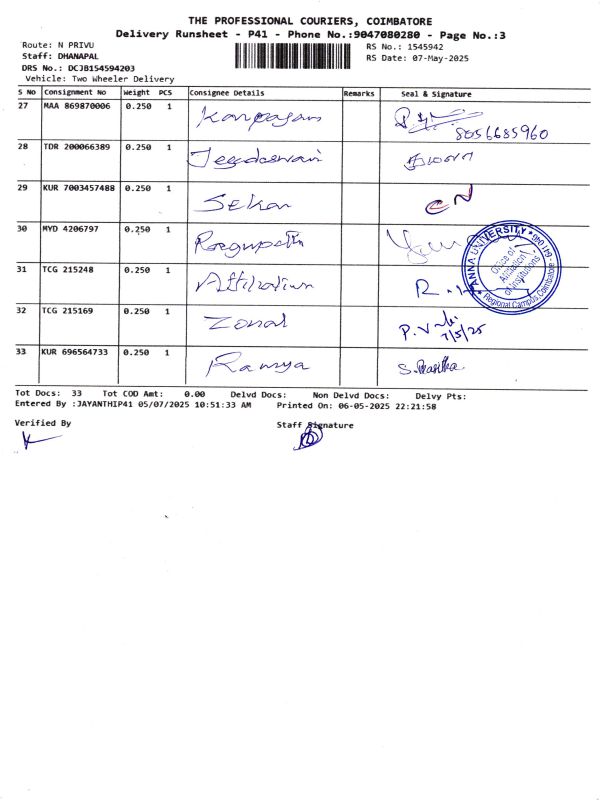 THE PROFESSIONAL COURIERS, COIMBATORE
Delivery Runsheet - P41 - Phone No.:9047080280 - Page No.:3
Route: N PRIVU
RS No.: 1545942
Staff: DHANAPAL
RS Date: 07-May-2025
DRS No.: DCJB154594203
Vehicle: Two Wheeler Delivery
S No Consignment No Weight PCS Consignee Details Remarks Seal & Signature
27 MAA 869870006 0.250 1
8056685960
28 TDR 200066389 0.250 1
29 KUR 7003457488 0.250 1 Sekar
30 MYD 4206797 0.250 1
ANNA UNIVERSITY
Office of
Affiliation
of Institutions
Regional Campus, Coimbatore - 641 046
31 TCG 215248 0.250 1
32 TCG 215169 0.250 1 Zonal
7/5/25
33 KUR 696564733 0.250 1 Ramya
Tot Docs: 33 Tot COD Amt: 0.00 Delvd Docs: Non Delvd Docs: Delvy Pts:
Entered By :JAYANTHIP41 05/07/2025 10:51:33 AM Printed On: 06-05-2025 22:21:58
Verified By
Staff Signature